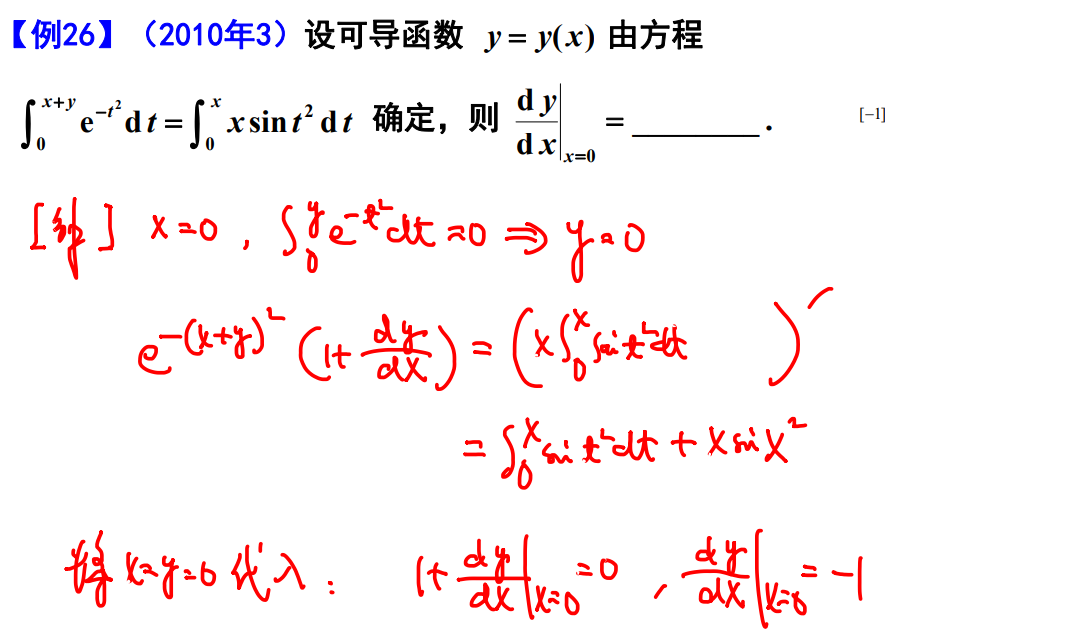 【例26】（2010年3）设可导函数 y = y(x) 由方程
∫₀^{x+y} e^{-t²} dt = ∫₀^{x} x sin t² dt 确定，则 dy/dx|_{x=0} = ________ . [-1]
[解] x=0, ∫₀^{y} e^{-t²}dt=0 ⇒ y=0
e^{-(x+y)²} (1+ dy/dx) = (x∫₀^{x} sin t²dt )′
= ∫₀^{x} sin t²dt + x sin x²
将 x=y=0 代入: 1+ dy/dx|_{x=0} =0 , dy/dx|_{x=0} = -1